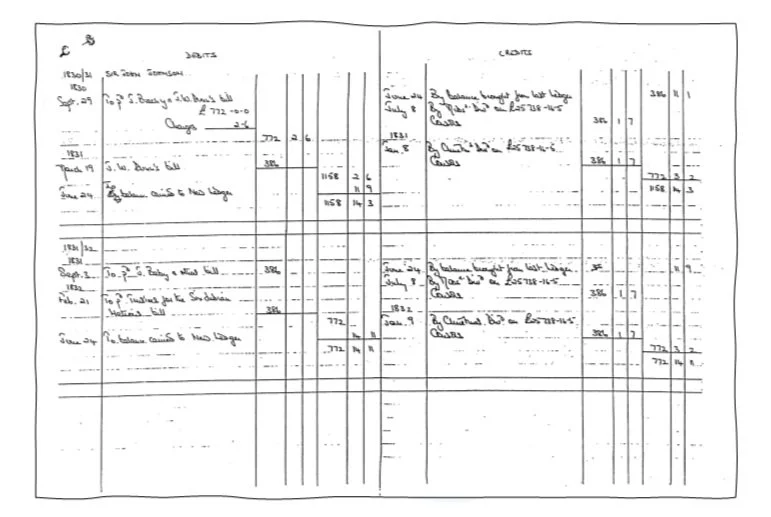 £ B
DEBITS
1830/31 SIR JOHN JOHNSON
1830
Sept. 29 To pd J. Baby & J. W. bill
£ 772-0-0
Charges 2-6
772 2 6
1831
March 19 J. W. bill 386
1158 2 6
June 24 By balance carried to New Ledger 11 9
1158 14 3
1831/32
1831
Sept. 3 To pd J. Baby & bill 386
1832
Feb. 21 To pd Trustees for the
bill 386
772
June 24 To balance carried to New Ledger 14 11
772 14 11
CREDITS
June 24 By balance brought from last Ledger 386 11 1
July 8 By Divd on £25738-16-5
Consols 386 1 7
1831
Jan. 8 By Divd on £25738-16-5
Consols 386 1 7
772 3 2
1158 14 3
June 24 By balance brought from last Ledger 11 9
July 8 By Divd on £25738-16-5
Consols 386 1 7
1832
Jan. 9 By Christmas Divd on £25738-16-5
Consols 386 1 7
772 3 2
772 14 11